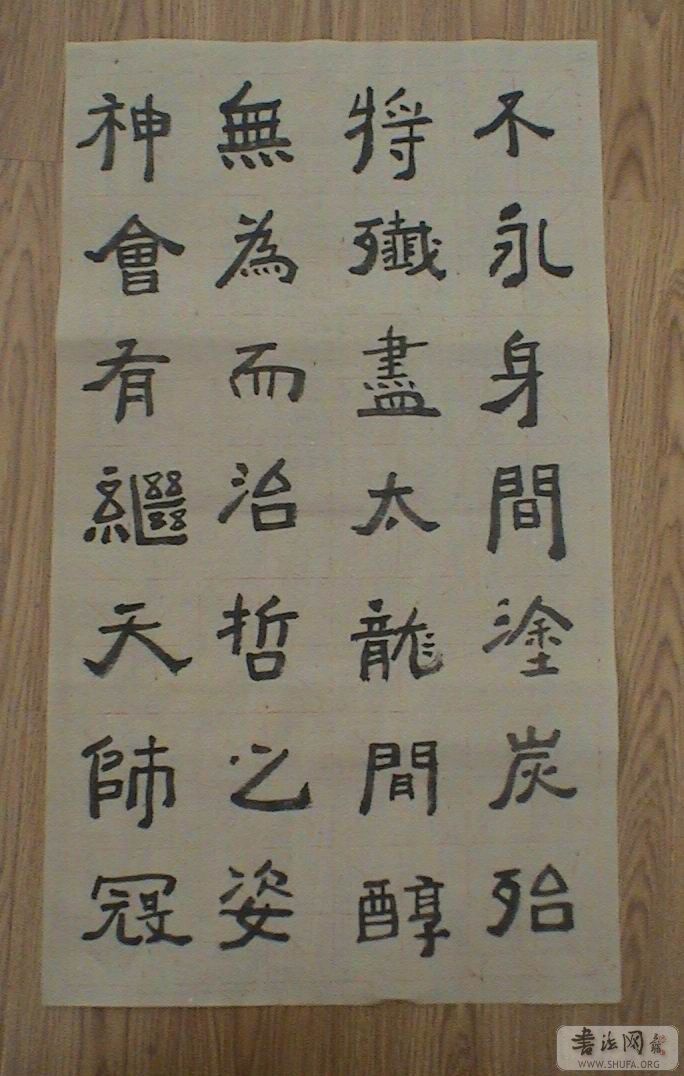 不永身間塗炭殆
將殲盡太龍閒醇
無為而治哲之姿
神會有繼天師冦
書法网
WWW.SHUFA.ORG